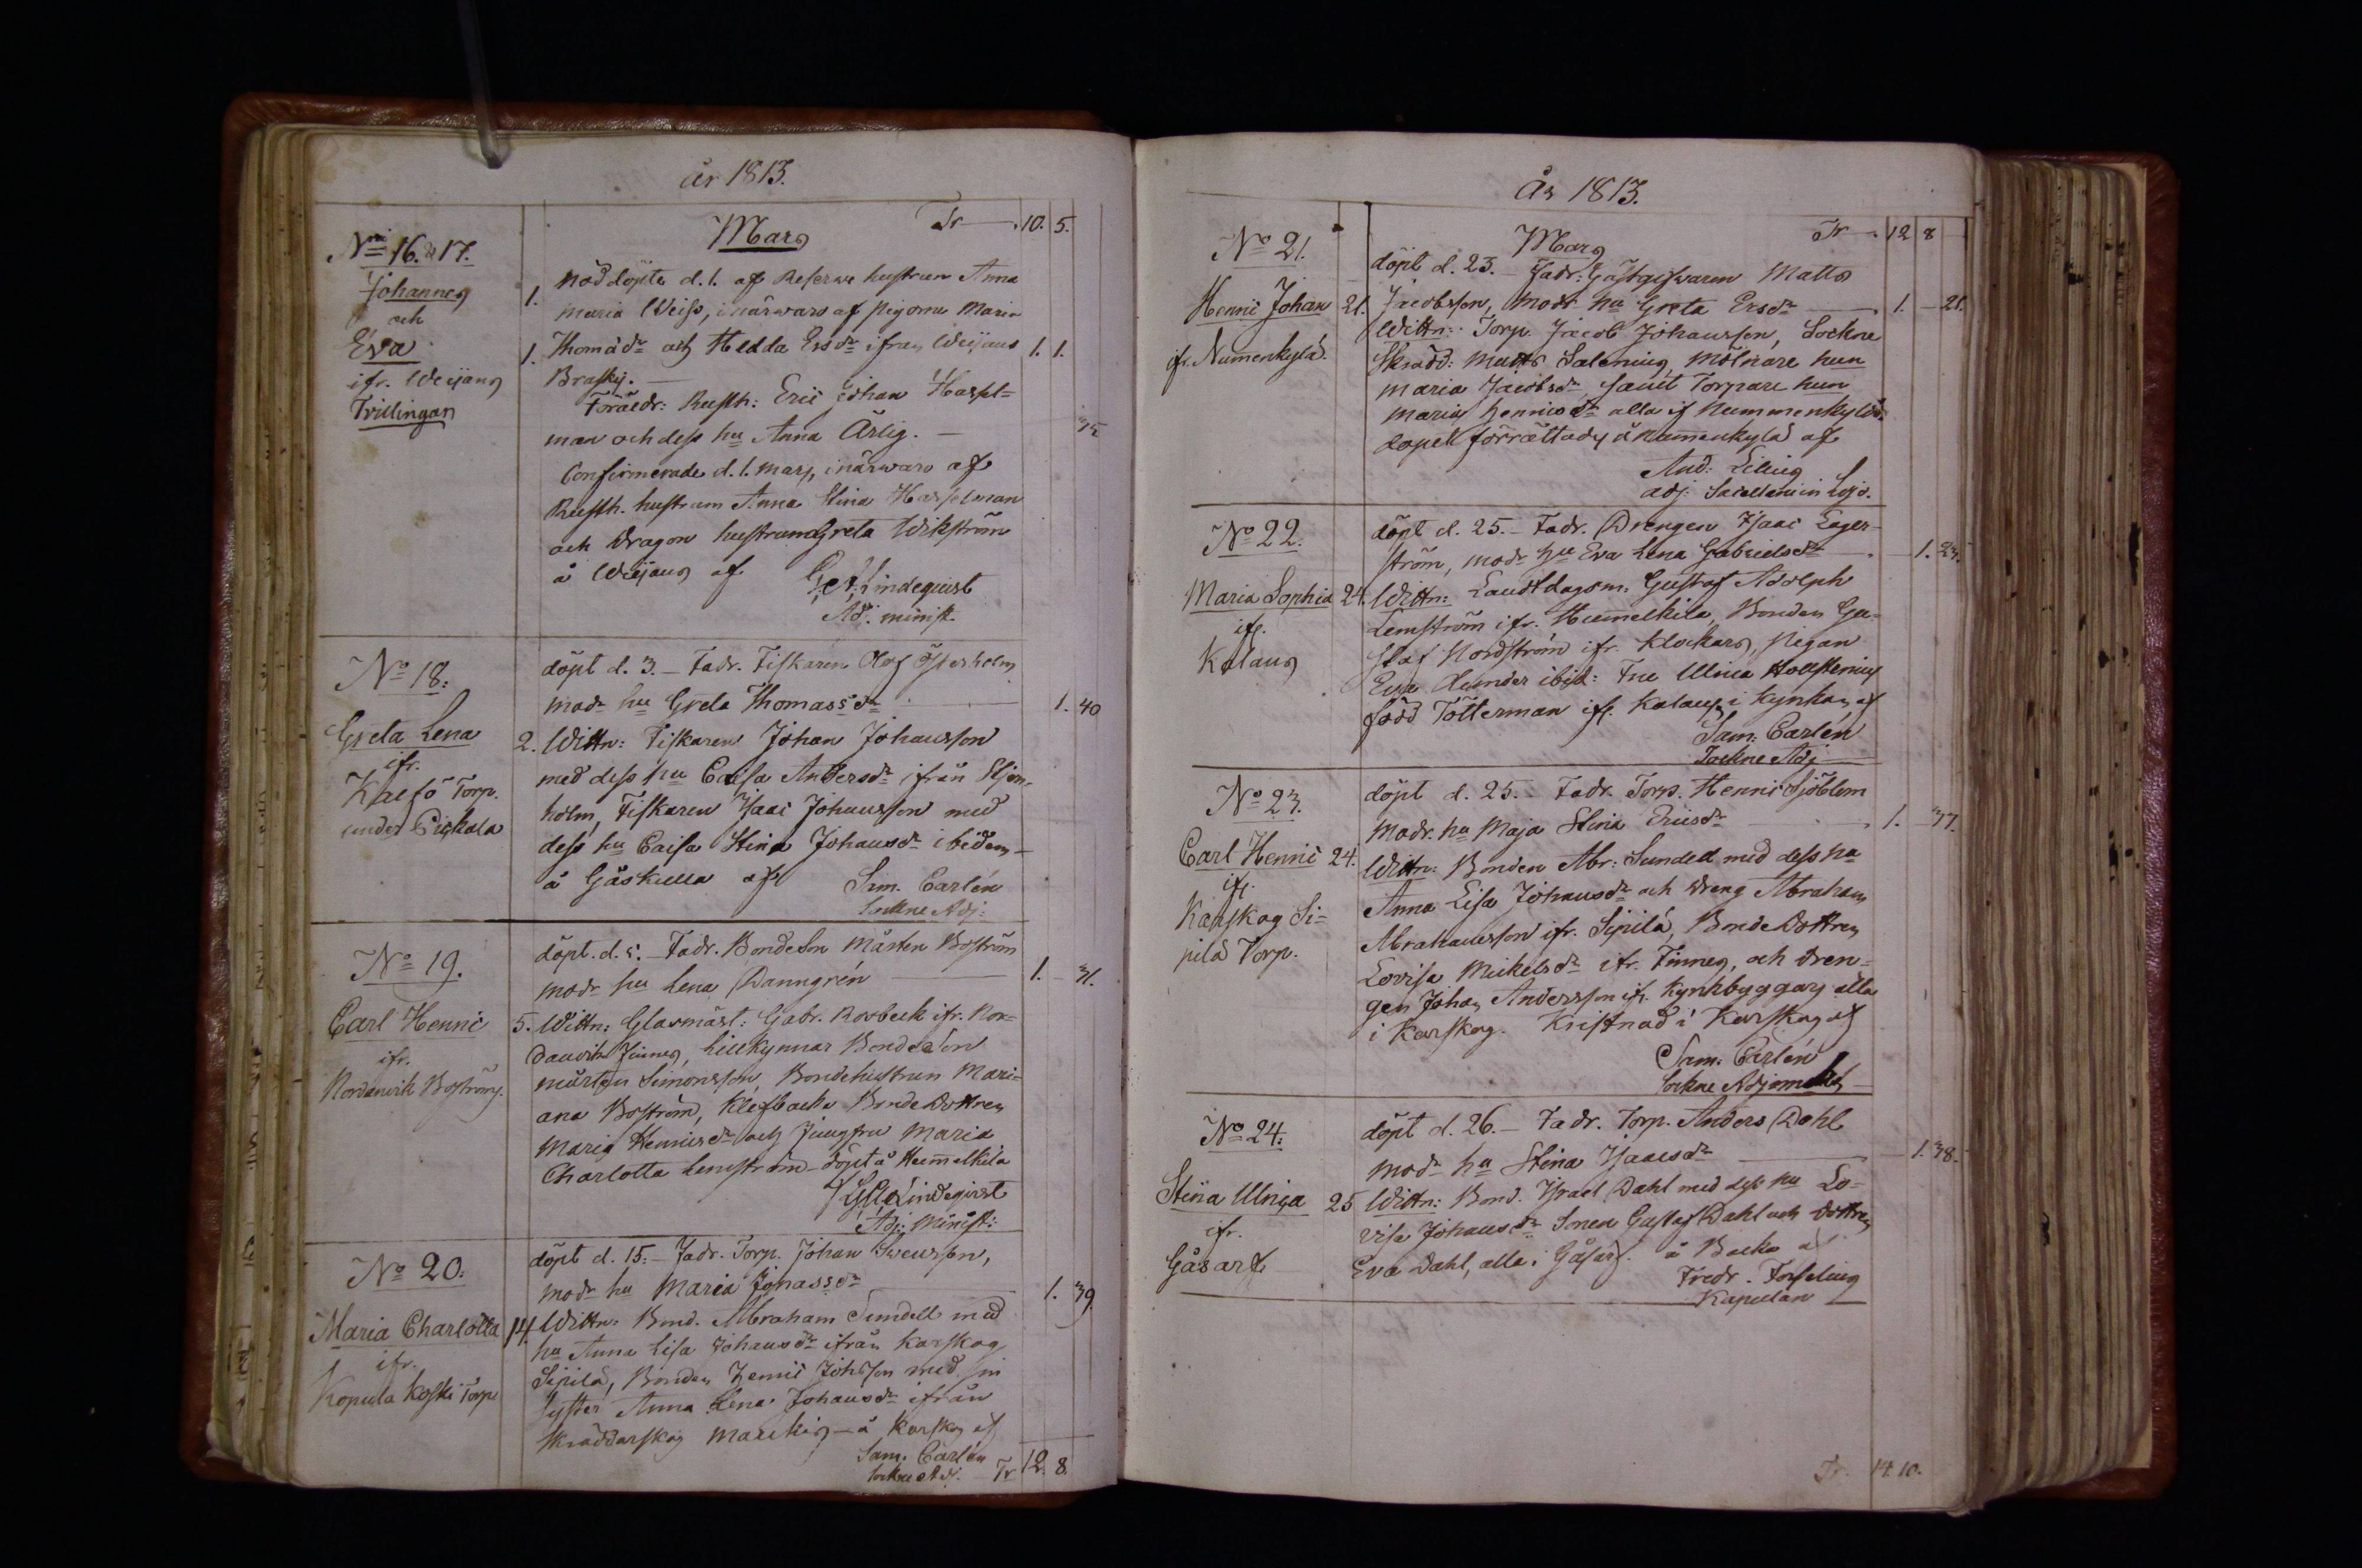 år 1813.
Mars Tr 10. 5.
Nris 16. & 17.
Johannes
och
Eva
ifr. Weijans
Trillingar
1.
1.
nöddöpte d. 1. af Reserve hustrun Anna
Maria Weiss, i närwaro af pigorna Maria
Thomadr och Hedda Ersdr ifrån Weijans 1. 1.
Brasky.
Föräldr: Rusth: Eric Johan Hassel=
man och dess hu Anna Ärlig. 35
Confirmerade d. 1. Mars, i närwaro af
Rusth. hustrum Anna Stina Hasselman
och Dragon hustrun Greta Wikström
å Weijans af
Lindequist
Adj. minist.
No 18:
Greta Lena
ifr.
Kalfö Torp.
under Pickala
2.
döpt d. 3. Fadr. Fiskaren Olof Österholm
modr hu Greta Thomassdr 1. 40
Wittn: Fiskaren Johan Johansson
med dess hu Caisa Andersdr ifrån
holm, Fiskaren Isaac Johansson med
dess hu Caisa Stina Johansdr ibidem
å Gåskulla af Sam. Carlén
Sockne Adj:
No 19.
Carl Henric
ifr.
Nordanvik Boströms.
5.
döpt. d. 5. Fadr. BondeSon Mårten Boström
modr hu Lena Danngrén 1. 31.
Wittn: Glasmäst: Gabr. Rosbeck ifr. Nor=
danvik Finnes, Lillkynnar BondeSon
Mårten Simonsson, Bondehustrun Mari=
ana Boström, Klefbacka BondeDottren
Maria Henricsdr och Jungfru Maria
Charlotta Lemström döpt å Hummelkila
Lindequist
Adj: Minist:
No 20:
Maria Charlotta
ifr.
Kopula Koski Torp
14.
döpt d. 15. Fadr. Torp. Johan Svensson,
modr hu Maria Jonassdr 1. 39.
Wittn: Bond. Abraham Sundell med
hu Anna Lisa Johansdr ifrån Karskog
Sipilä, Bonden Henric Johsson med sin
syster Anna Lena Johansdr ifrån
Skräddarskog å Karskog af
Sam. Carlén
Sockne Adj. Tr 12. 8.
År 1813.
Mars Tr 12 8
No 21.
Henric Johan
ifr. Numenkylä.
21.
döpt d. 23. Fadr: Gästgifwaren Matts
Jacobsson, modr hu Greta Ersdr 1. 21.
Wittn: Torp. Jacob Johansson, Sockne
Skrädd: Matts Salenius, Mölnare hun
Maria Jacobsdr samt Torpare hun
Maria Henricsdr alla if Nummenkylä.
dopet förrättades å Numenkylä af
And: Lilius
adj. Sacellani in Lojo.
No 22.
Maria Sophia
ifr.
Kalans
24.
döpt d. 25. Fadr. Drengen Isaac Lager-
ström, modr hu Eva Lena Gabrielsdr 1. 23.
Wittn: Landtdagsm: Gustaf Adolph
Lemström ifr. Hummelkila, Bonden Gu=
staf Nordström ifr. Klockars, Pigan
Eva Lunder ibid: Fru Ulrica Hollstenius
född Tölterman ifr. Kalans, i Kyrkan af
Sam: Carlén
Sockne Adj
No 23.
Carl Henric
ifr.
Karskog Si=
pilä Torp.
24.
döpt d. 25. Fadr. Torp. Henric Sjöblom
Modr. hu Maja Stina Ericsdr 1. 37.
Wittn: Bonden Abr: Sundell med dess hu
Anna Lisa Johansdr och Dreng Abraham
Abrahamsson ifr. Sipilä, BondeDottren
Lovisa Mickelsdr ifr. Finnes, och dren=
gen Johan Andersson ifr. Kyrkbyggars alla
i Karskog. Kristnad i Karskog af
Sam: Carlén
Sockne Adjunct
No 24:
Stina Ulrica
ifr.
Gåsarf
25
döpt d. 26. Fadr. Torp. Anders Dahl
modr hu Stina Isacsdr 1. 38.
Wittn: Bond. Israel Dahl med dess hu Lo=
visa Johansdr Sonen Gustaf Dahl och dottren
Eva Dahl, alla i Gåsarf. å Backa af
Fredr. Forselius
Kapellan
Tr. 14. 10.